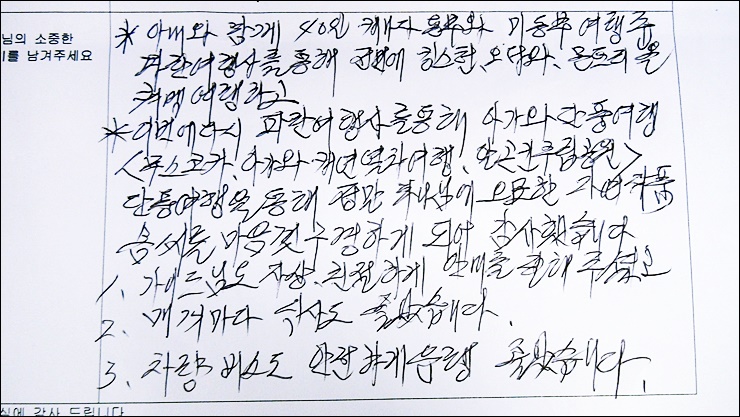 님의 소중한
를 남겨주세요
* 아내와 함께 40일 캐나다 동부와 미동부 여행중
파란여행사를 통해 전번에 킹스턴, 오타와, 몬트리올
퀘벡여행하고
* 이번에 다시 파란여행사를 통해 아가와 단풍여행
<무스코카, 아가와 캐년 열차여행, 알곤퀸주립공원>
단풍여행을 통해 정말 캐나다에 오묘한 자연
솜씨를 마음껏 구경하게 되어 감사했습니다
1. 가이드님도 자상, 친절하게 안내를 잘해 주셨고
2. 매 거마다 식사도 좋았습니다.
3. 차량 버스도 안전하게 운행 좋았습니다.
식에 감사 드립니다